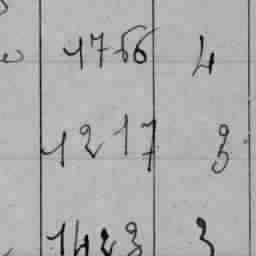 1766 4
1217 3
1423 3